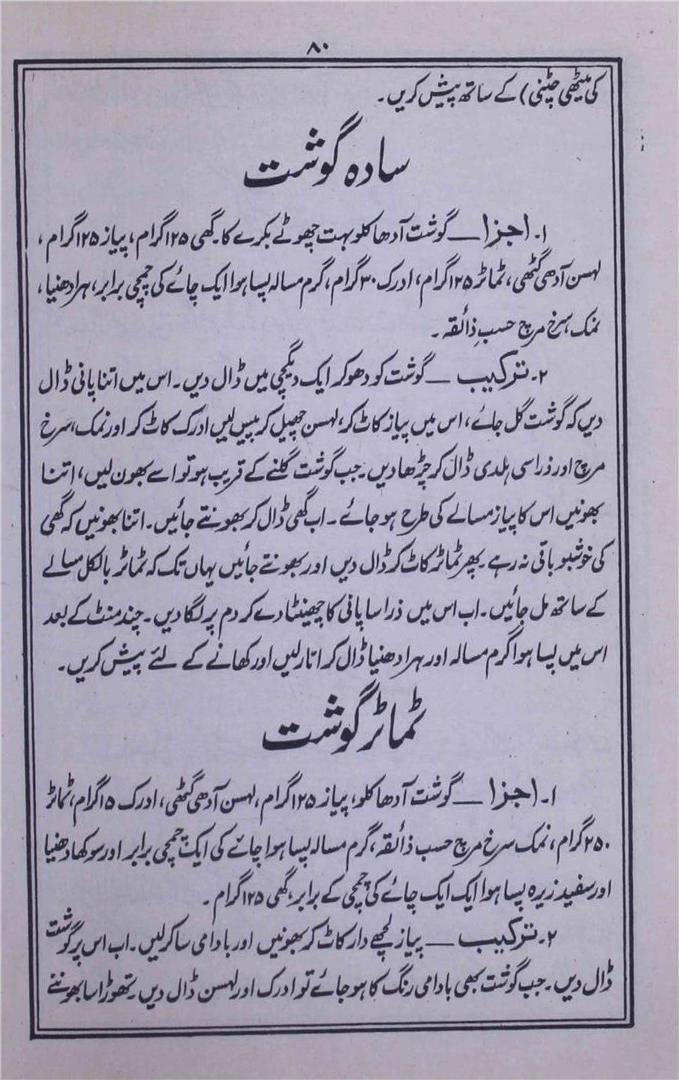 ۸۰
کی میٹھی چٹنی) کے ساتھ پیش کریں۔
سادہ گوشت
۱۔ اجزا ــــ گوشت آدھا کلو بہت چھوٹے بکرے کا۔ گھی ۱۲۵ گرام، پیاز ۱۲۵ گرام،
لہسن آدھی گٹھی، ٹماٹر ۱۲۵ گرام، ادرک ۳۰ گرام، گرم مسالہ پسا ہوا ایک چائے کی چمچی برابر، ہرا دھنیا،
نمک سرخ مرچ حسبِ ذائقہ۔
۲۔ ترکیب ــــ گوشت کو دھو کر ایک دیگچی میں ڈال دیں۔ اس میں اتنا پانی ڈال
دیں کہ گوشت گل جائے، اس میں پیاز کاٹ کر، لہسن چھیل کر پیس لیں ادرک کاٹ کر اور نمک، سرخ
مرچ اور ذرا سی ہلدی ڈال کر چڑھا دیں۔ جب گوشت گلنے کے قریب ہو تو اسے بھون لیں، اتنا
بھونیں اس کا پیاز مسالے کی طرح ہو جائے۔ اب گھی ڈال کر بھونتے جائیں۔ اتنا بھونیں کہ گھی
کی خوشبو باقی نہ رہے۔ پھر ٹماٹر کاٹ کر ڈال دیں اور بھونتے جائیں یہاں تک کہ ٹماٹر بالکل مسالے
کے ساتھ مل جائیں۔ اب اس میں ذرا سا پانی کا چھینٹا دے کر دم پر لگا دیں۔ چند منٹ کے بعد
اس میں پسا ہوا گرم مسالہ اور ہرا دھنیا ڈال کر اتار لیں اور کھانے کے لئے پیش کریں۔
ٹماٹر گوشت
۱۔ اجزا ــــ گوشت آدھا کلو، پیاز ۱۲۵ گرام، لہسن آدھی گٹھی، ادرک ۱۵ گرام، ٹماٹر
۲۵۰ گرام، نمک سرخ مرچ حسب ذائقہ، گرم مسالہ پسا ہوا چائے کی ایک چمچی برابر اور سوکھا دھنیا
اور سفید زیرہ پسا ہوا ایک ایک چائے کی چمچی کے برابر، گھی ۱۲۵ گرام۔
۲۔ ترکیب ــــ پیاز لچھے دار کاٹ کر بھونیں اور بادامی سا کر لیں۔ اب اس پر گوشت
ڈال دیں۔ جب گوشت بھی بادامی رنگ کا ہو جائے تو ادرک اور لہسن ڈال دیں۔ تھوڑا سا بھوننے